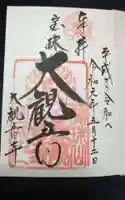 平成から令和へ
令和元年五月十二日
奉拝
宝珠
大観音
大観音寺